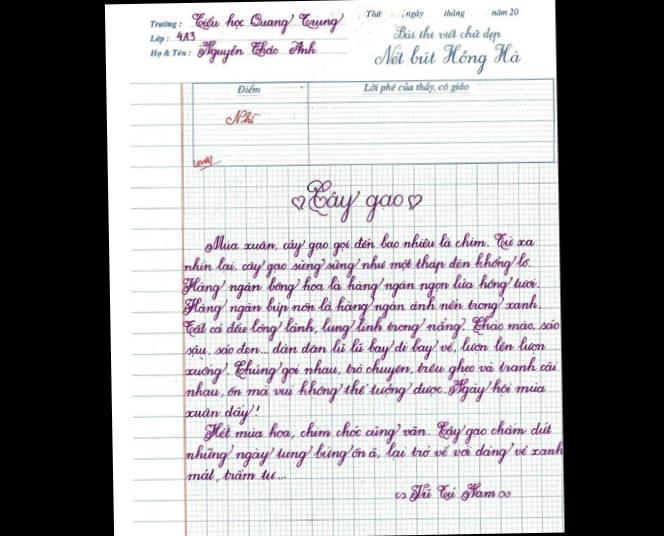 Trường: Tiểu học Quang Trung
Thứ ngày tháng năm 20
Lớp: 4A3
Bài thi viết chữ đẹp
Họ & Tên: Nguyễn Thảo Anh
Nét bút Hồng Hà
Điểm
Lời phê của thầy, cô giáo
Nhì
Cây gạo
Mùa xuân, cây gạo gọi đến bao nhiêu là chim. Từ xa
nhìn lại, cây gạo sừng sững như một tháp đèn khổng lồ.
Hàng ngàn bông hoa là hàng ngàn ngọn lửa hồng tươi.
Hàng ngàn búp nõn là hàng ngàn ánh nến trong xanh.
Tất cả đều lóng lánh, lung linh trong nắng. Chào mào, sáo
sậu, sáo đen... đàn đàn lũ lũ bay đi bay về, lượn lên lượn
xuống. Chúng gọi nhau, trò chuyện, trêu ghẹo và tranh cãi
nhau, ồn mà vui không thể tưởng được. Ngày hội mùa
xuân đấy!
Hết mùa hoa, chim chóc cũng vãn. Cây gạo chấm dứt
những ngày tưng bừng ồn ã, lại trở về với dáng vẻ xanh
mát, trầm tư...
Vũ Tú Nam